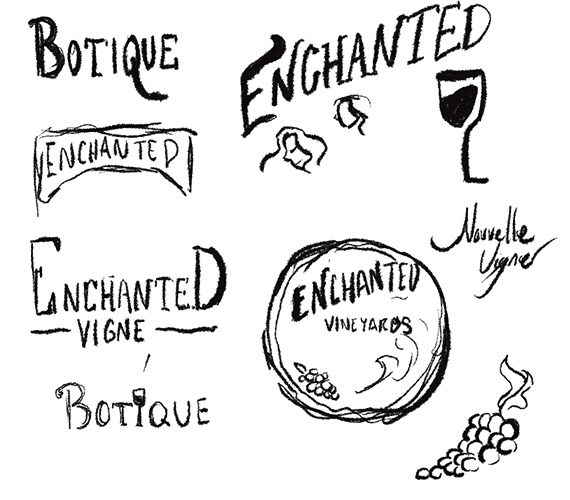 BOTIQUE
ENCHANTED
ENCHANTED
ENCHANTED
VIGNE
Nouvelle
Vignes
ENCHANTED
VINEYARDS
BOTIQUE